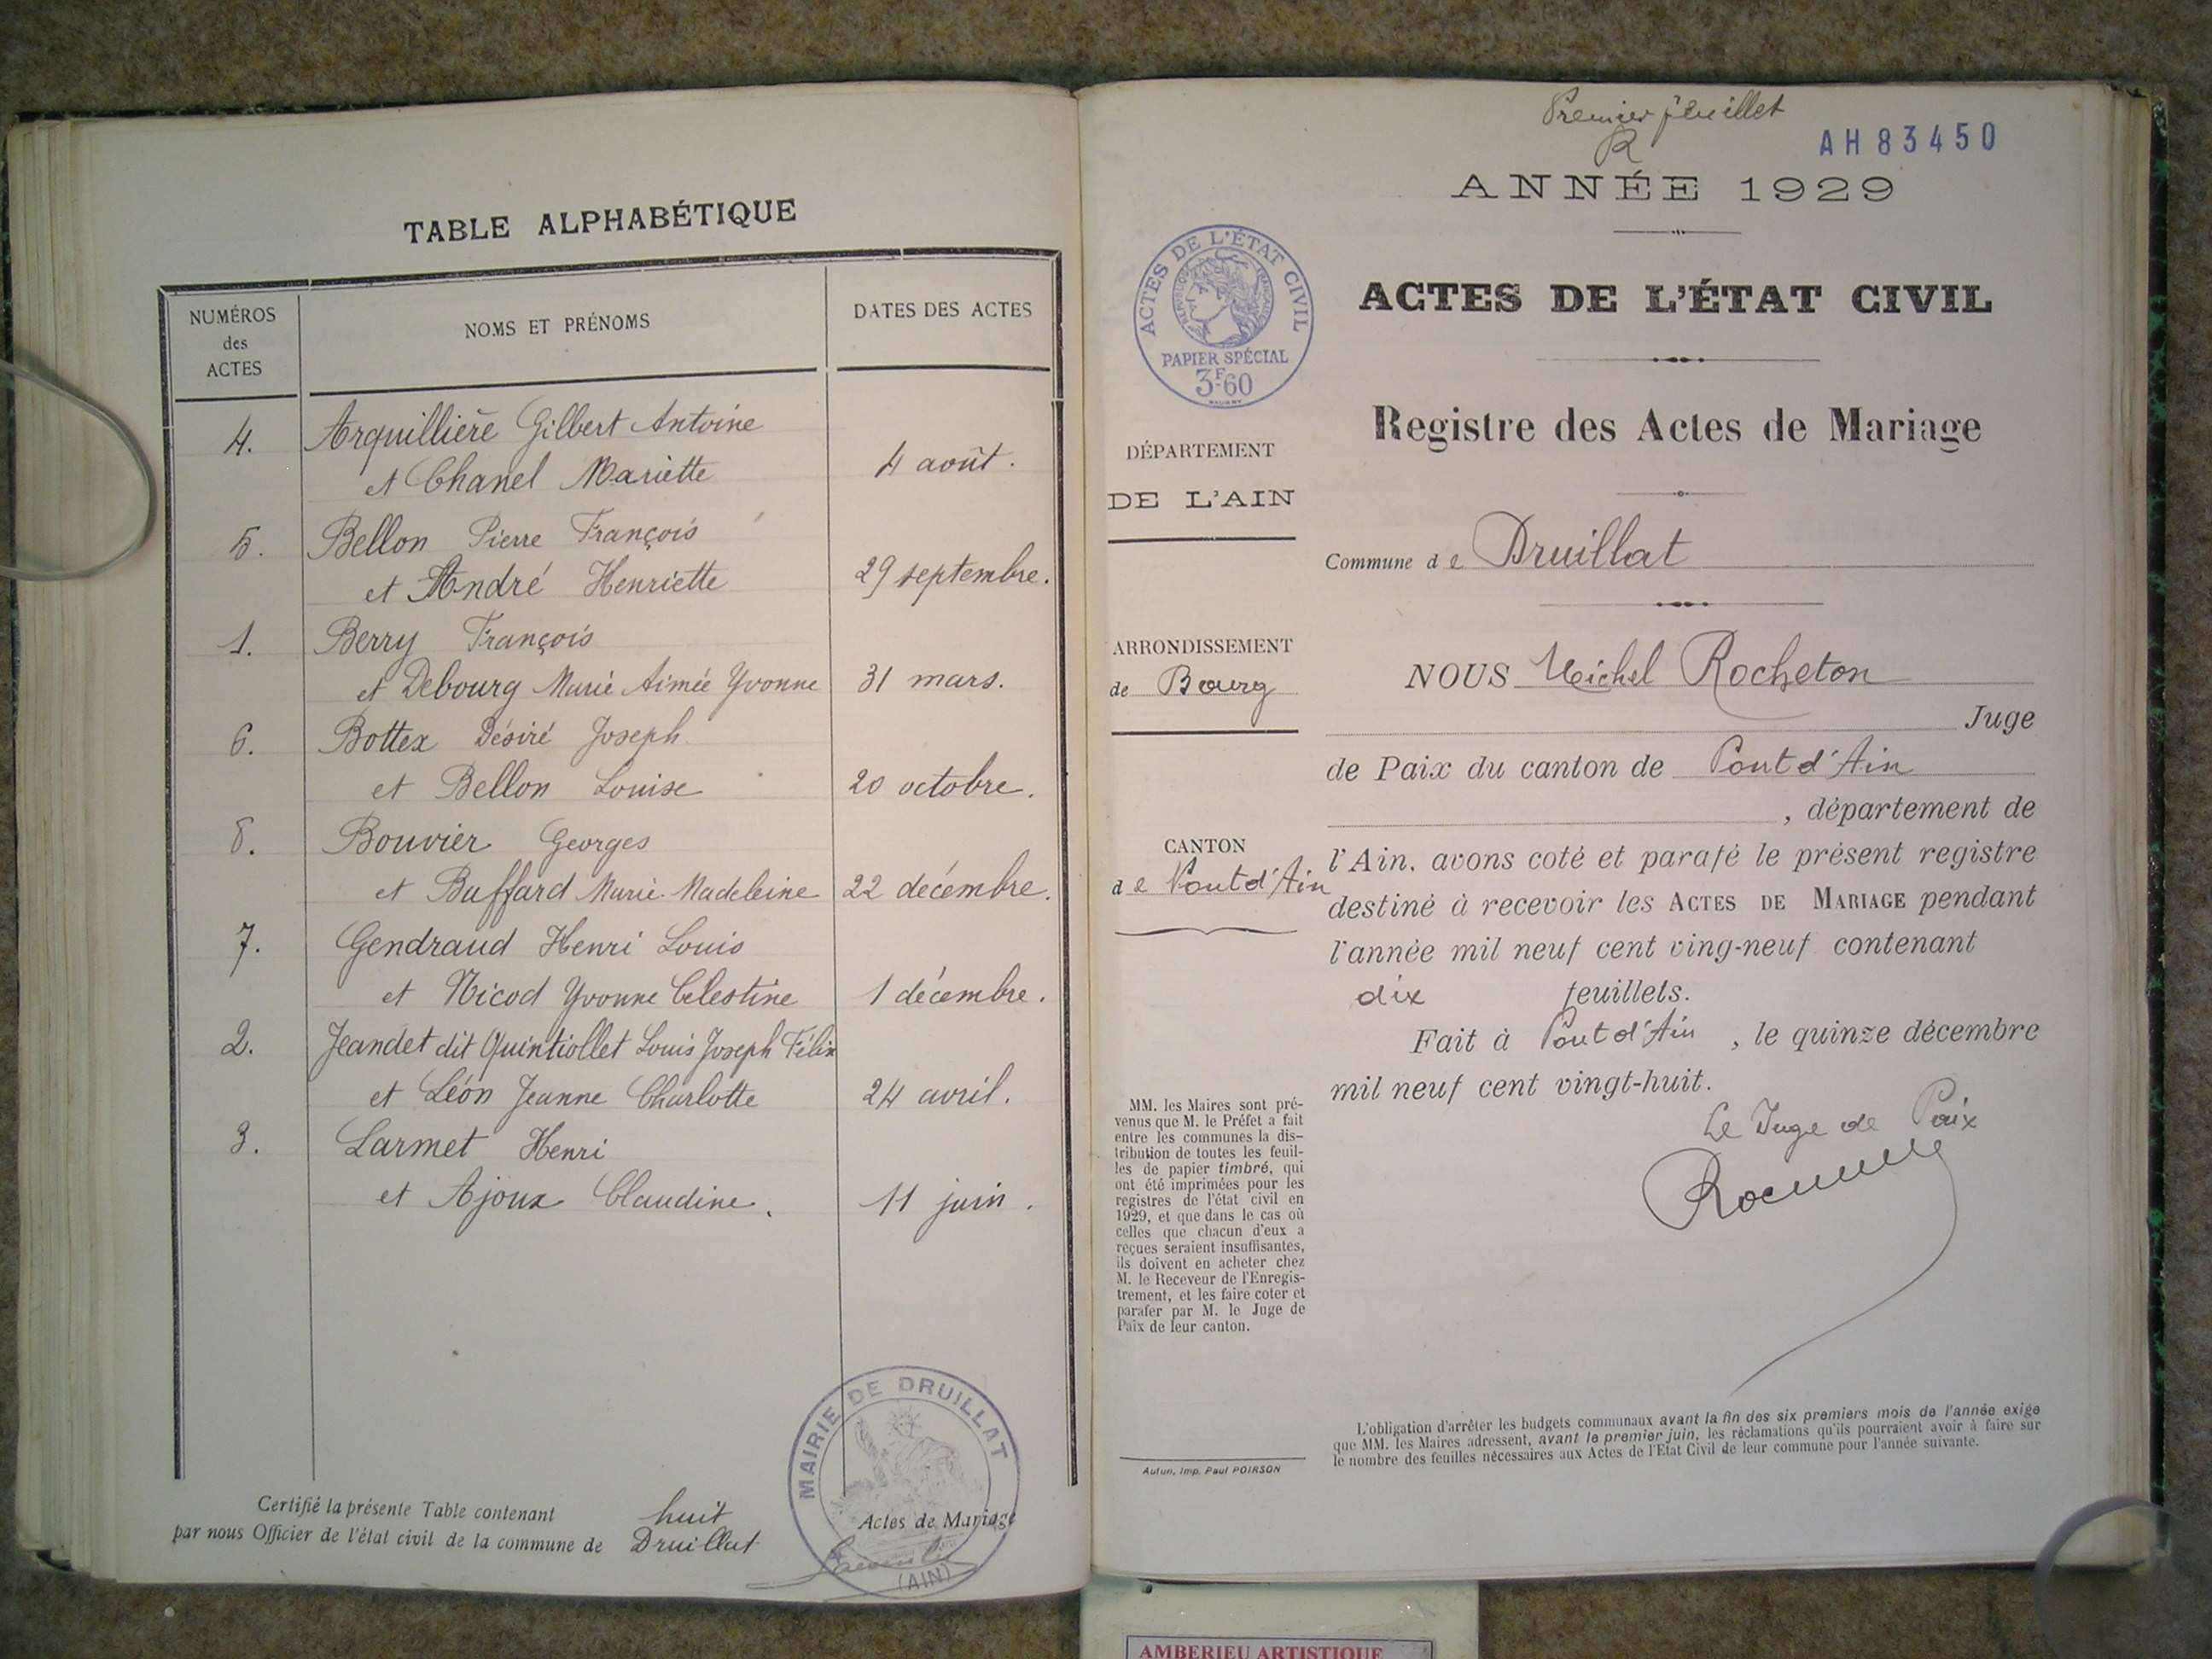 TABLE ALPHABÉTIQUE
NUMÉROS
des
ACTES
NOMS ET PRÉNOMS
DATES DES ACTES
4. Arquillière Gilbert Antoine
et Chanel Mariette 4 août.
5. Bellon Pierre François
et André Henriette 29 septembre.
1. Berry François
et Debourg Marie Aimée Yvonne 31 mars.
6. Bottex Désiré Joseph
et Bellon Louise 20 octobre.
8. Bouvier Georges
et Buffard Marie-Madeleine 22 décembre.
7. Gendraud Henri Louis
et Nicod Yvonne Célestine 1 décembre.
2. Jeandet dit Quintiollet Louis Joseph Félix
et Léon Jeanne Charlotte 24 avril.
3. Larmet Henri
et Ajoux Claudine. 11 juin.
Certifié la présente Table contenant huit Actes de Mariage
par nous Officier de l'état civil de la commune de Druillat
MAIRIE DE DRUILLAT
(AIN)
Premier feuillet
R
AH83450
ANNÉE 1929
ACTES DE L'ÉTAT CIVIL
RÉPUBLIQUE FRANÇAISE
PAPIER SPÉCIAL
3F60
ACTES DE L'ÉTAT CIVIL
Registre des Actes de Mariage
DÉPARTEMENT
DE L'AIN
Commune de Druillat
ARRONDISSEMENT
de Bourg
NOUS Michel Rocheton
Juge
de Paix du canton de Pont d'Ain
, département de
CANTON
de Pont d'Ain
l'Ain, avons coté et parafé le présent registre
destiné à recevoir les ACTES DE MARIAGE pendant
l'année mil neuf cent ving-neuf contenant
dix feuillets.
Fait à Pont d'Ain, le quinze décembre
mil neuf cent vingt-huit.
Le Juge de Paix
MM. les Maires sont pré-
venus que M. le Préfet a fait
entre les communes la dis-
tribution de toutes les feuil-
les de papier timbré, qui
ont été imprimées pour les
registres de l'état civil en
1929, et que dans le cas où
celles que chacun d'eux a
reçues seraient insuffisantes,
ils doivent en acheter chez
M. le Receveur de l'Enregis-
trement, et les faire coter et
parafer par M. le Juge de
Paix de leur canton.
Autun, Imp. Paul POIRSON
L'obligation d'arrêter les budgets communaux avant la fin des six premiers mois de l'année exige
que MM. les Maires adressent, avant le premier juin, les réclamations qu'ils pourraient avoir à faire sur
le nombre des feuilles nécessaires aux Actes de l'Etat Civil de leur commune pour l'année suivante.
AMBERIEU ARTISTIQUE